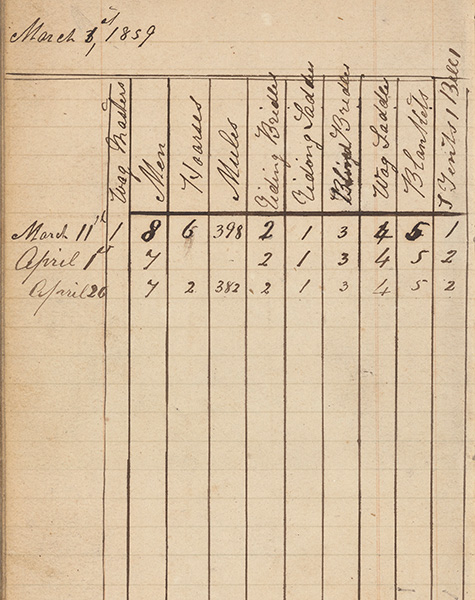 March 1st, 1859
Wag Masters Men Hoarses Mules Riding Bridles Riding Saddles Blind Bridles Wag Saddles Blankets Tents Bells
March 11th 1 8 6 398 2 1 3 4 5 1
April 1st 7 2 1 3 4 5 2
April 26 7 2 382 2 1 3 4 5 2